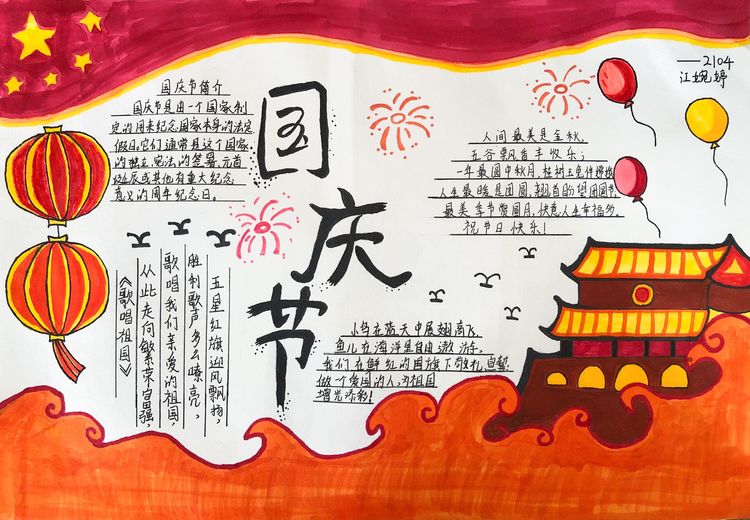 国庆节简介
国庆节是由一个国家制
定的用来纪念国家本身的法定
假日。它们通常是这个国家
的独立、宪法的签署、元首
诞辰或其他有重大纪念
意义的周年纪念日。
国
庆
节
——2104
江婉婷
人间最美是金秋,
五谷飘香丰收乐;
一年最圆中秋月,桂树玉兔伴嫦娥
人生最暖是团圆,翘首盼望团圆节
最美季节赏圆月,快意人生幸福多。
祝节日快乐!
五星红旗迎风飘扬,
胜利歌声多么嘹亮,
歌唱我们亲爱的祖国,
从此走向繁荣富强,
《歌唱祖国》
小鸟在蓝天中展翅高飞,
鱼儿在海洋里自由遨游,
我们在鲜红的国旗下敬礼宣誓:
做一个爱国的人,为祖国
增光添彩!